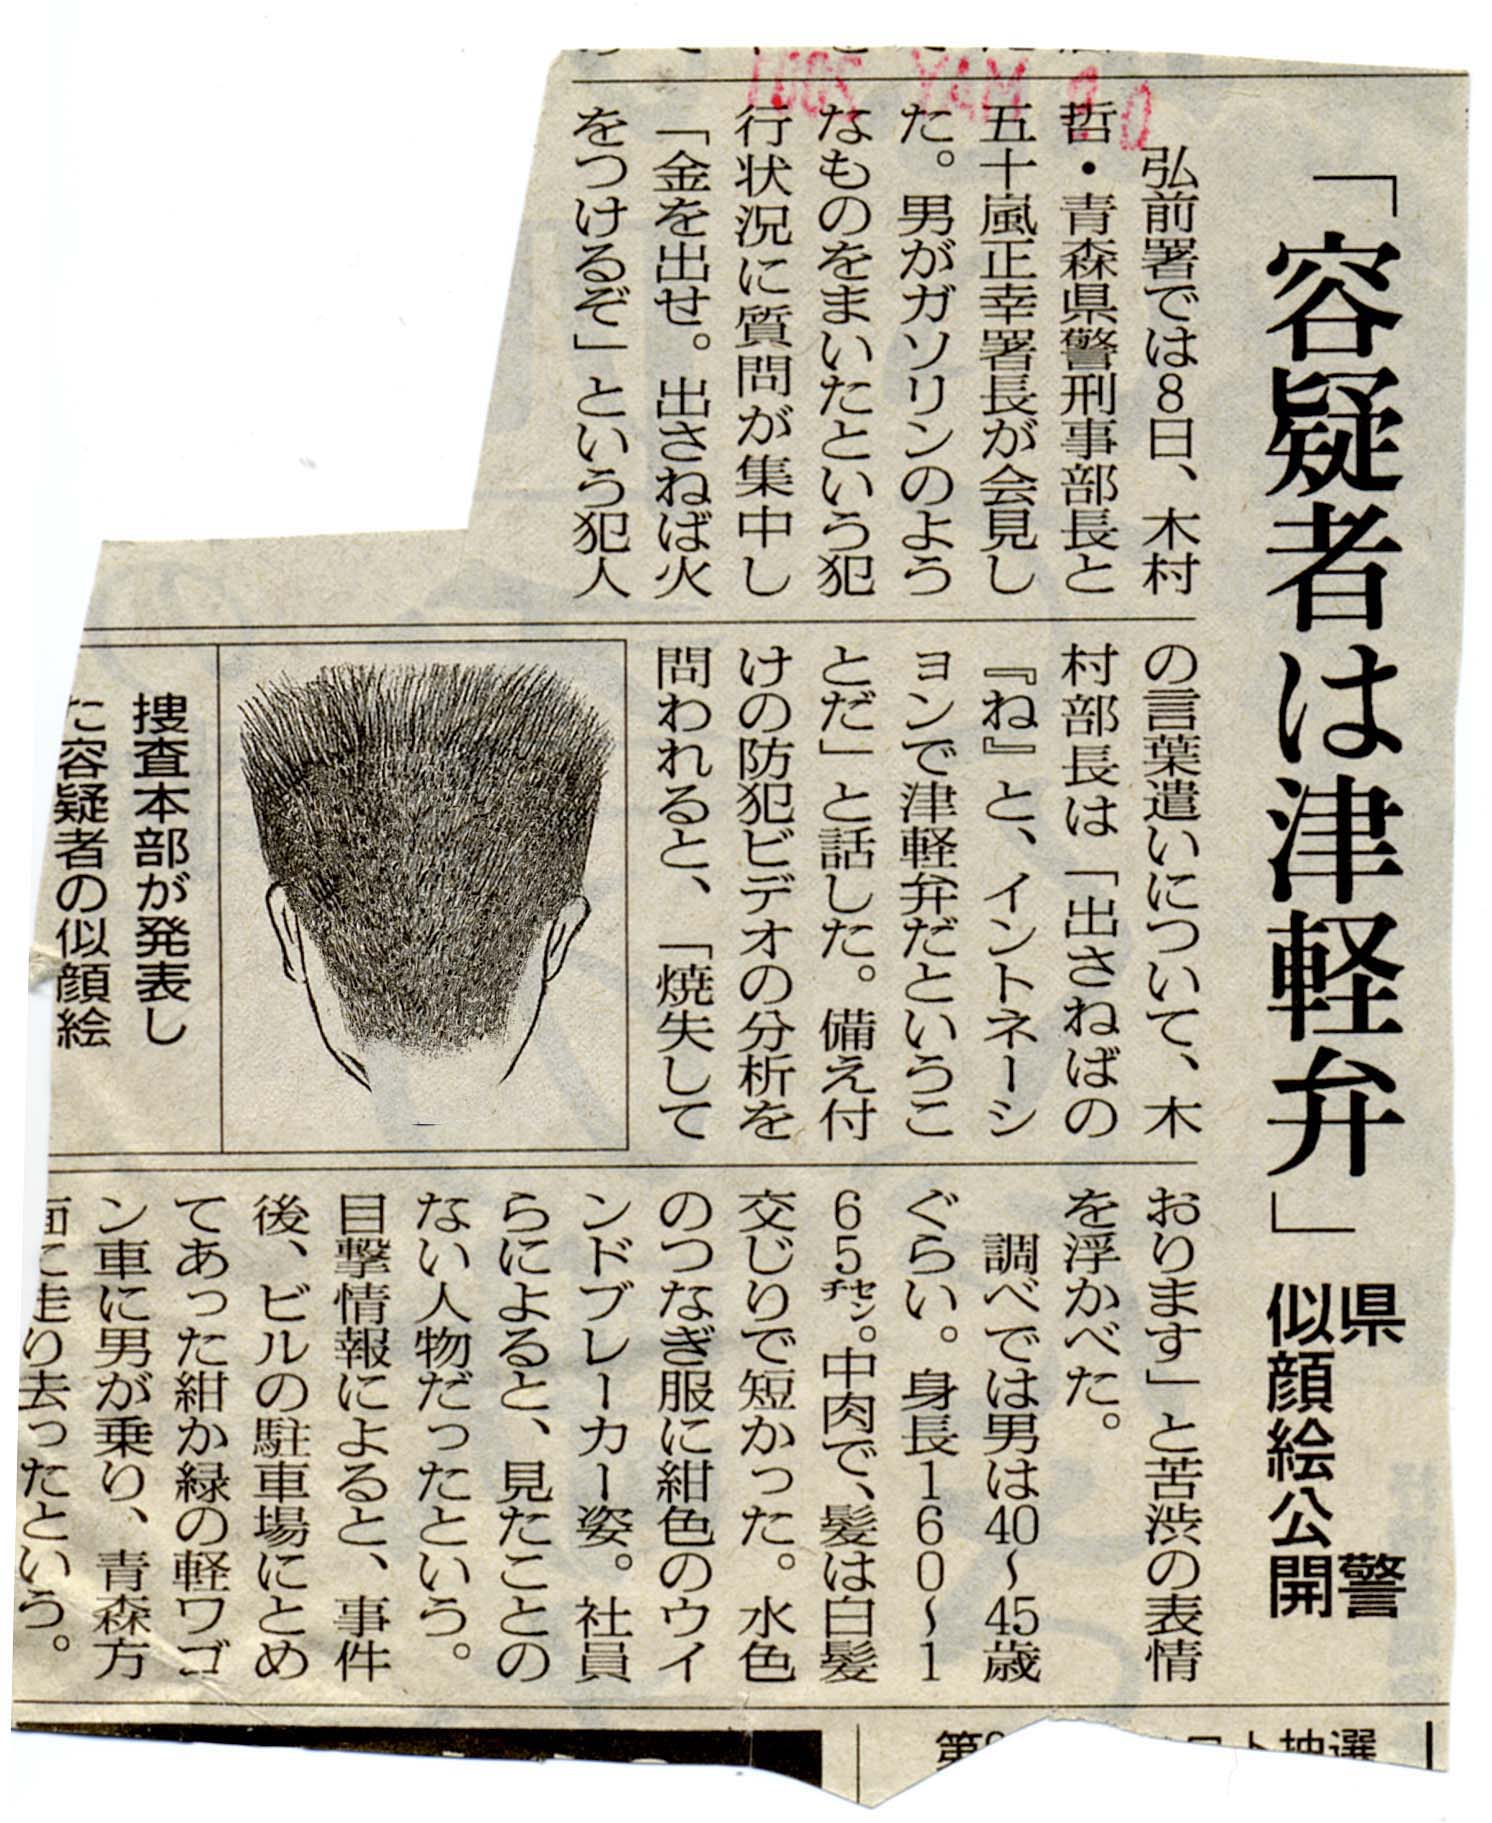 「容疑者は津軽弁」
県警
似顔絵公開
弘前署では8日、木村
哲・青森県警刑事部長と
五十嵐正幸署長が会見し
た。男がガソリンのよう
なものをまいたという犯
行状況に質問が集中し
「金を出せ。出さねば火
をつけるぞ」という犯人
の言葉遣いについて、木
村部長は「出さねばの
『ね』と、イントネーシ
ョンで津軽弁だというこ
とだ」と話した。備え付
けの防犯ビデオの分析を
問われると、「焼失して
おります」と苦渋の表情
を浮かべた。
調べでは男は40～45歳
ぐらい。身長160～1
65㌢。中肉で、髪は白髪
交じりで短かった。水色
のつなぎ服に紺色のウイ
ンドブレーカー姿。社員
らによると、見たことの
ない人物だったという。
目撃情報によると、事件
後、ビルの駐車場にとめ
てあった紺か緑の軽ワゴ
ン車に男が乗り、青森方
面に走り去ったという。
捜査本部が発表し
た容疑者の似顔絵
抽選